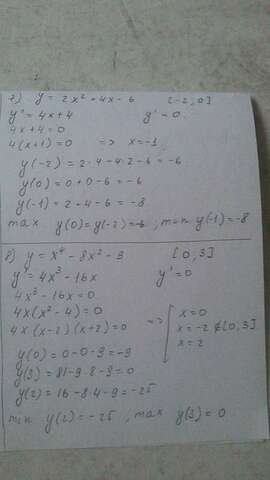 7) y = 2x² + 4x - 6 [-2, 0]
y' = 4x + 4 y' = 0
4x + 4 = 0
4(x + 1) = 0 => x = -1
y(-2) = 2·4 - 4·2 - 6 = -6
y(0) = 0 + 0 - 6 = -6
y(-1) = 2 - 4 - 6 = -8
max y(0) = y(-2) = -6, min y(-1) = -8
8) y = x⁴ - 8x² - 9 [0, 3]
y' = 4x³ - 16x y' = 0
4x³ - 16x = 0
4x(x² - 4) = 0
4x(x - 2)(x + 2) = 0 => [ x = 0
x = -2 ∉ [0, 3]
x = 2
y(0) = 0 - 0 - 9 = -9
y(3) = 81 - 9·8 - 9 = 0
y(2) = 16 - 8·4 - 9 = -25
min y(2) = -25, max y(3) = 0